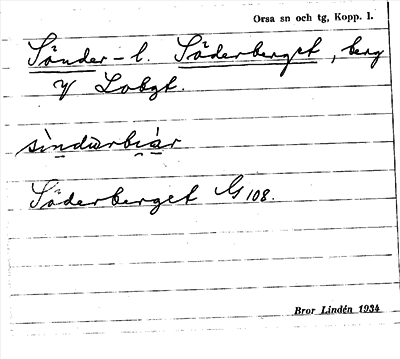 Orsa sn och tg, Kopp. l.
Sönder- l. Söderberget, berg
V Lobgt.
sìndurbiär
Söderberget G 108.
Bror Lindén 1934